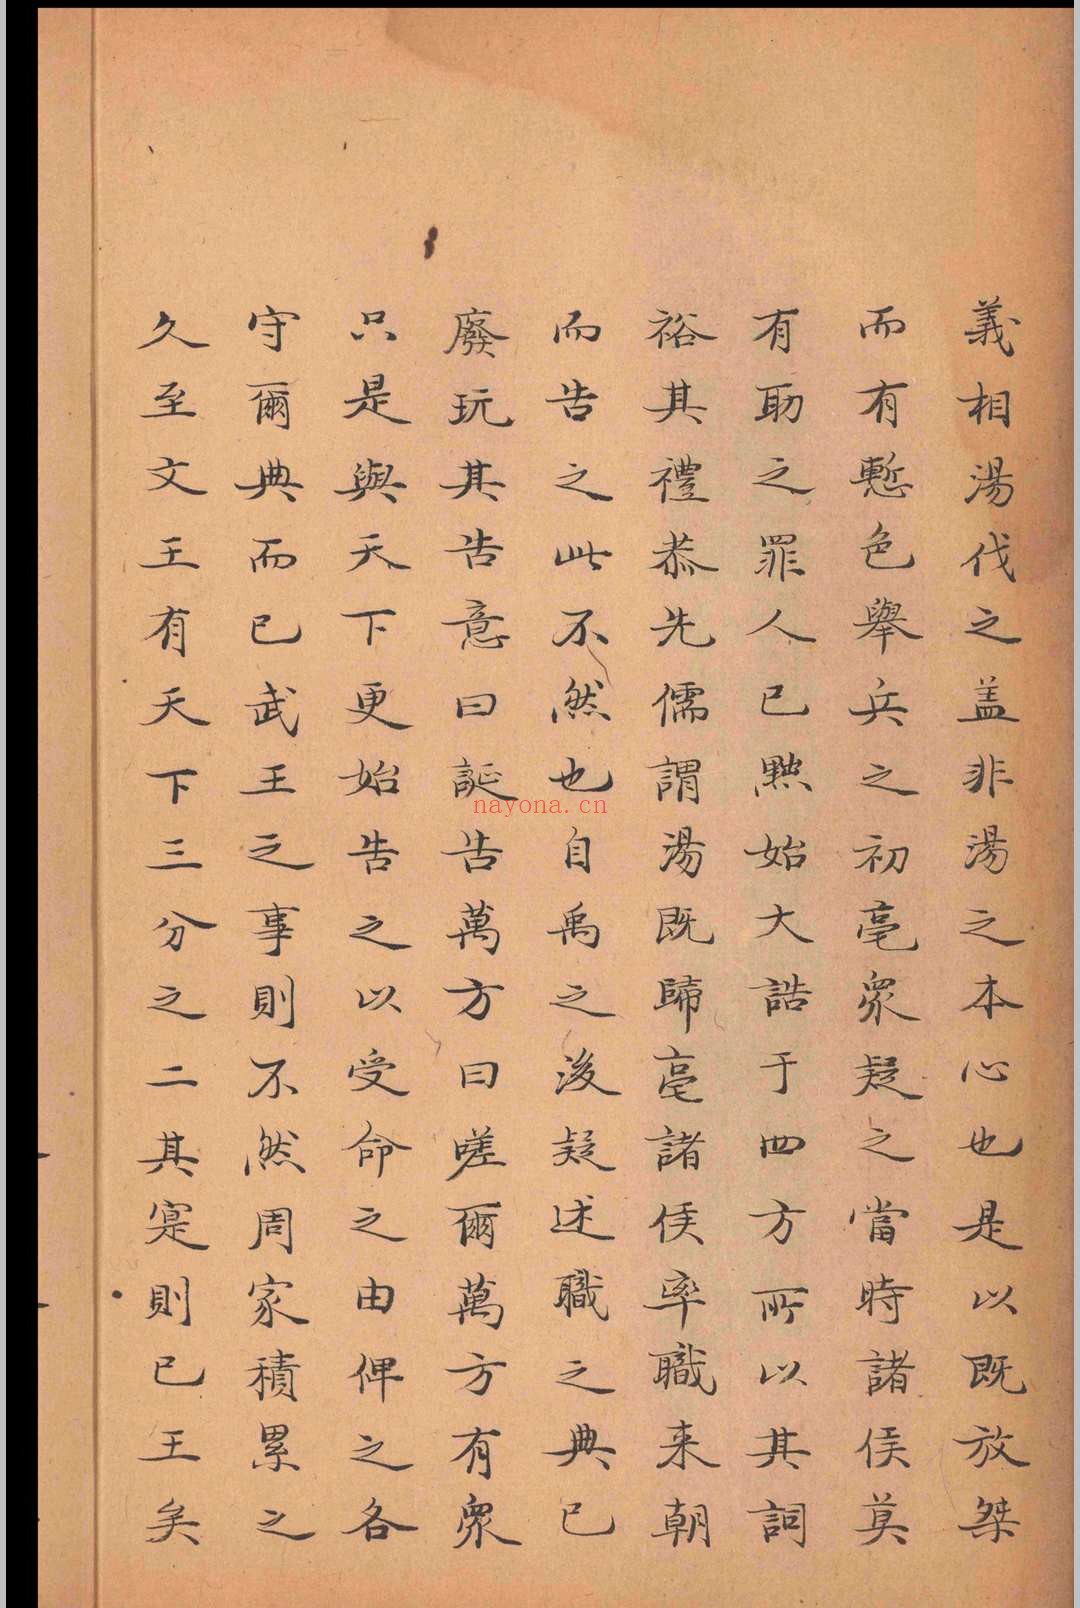 義相湯伐之盖非湯之本心也是以既放桀
而有慙色舉兵之初亳衆疑之當時諸侯莫
有助之罪人已黙始大誥于四方所以其詞
裕其禮恭先儒謂湯既歸亳諸侯率職来朝
而告之此不然也自禹之後疑述職之典已
廢玩其告意曰誕告萬方曰嗟爾萬方有衆
只是與天下更始告之以受命之由俾之各
守爾典而已武王之事則不然周家積累之
久至文王有天下三分之二其寔則已王矣
nayona.cn